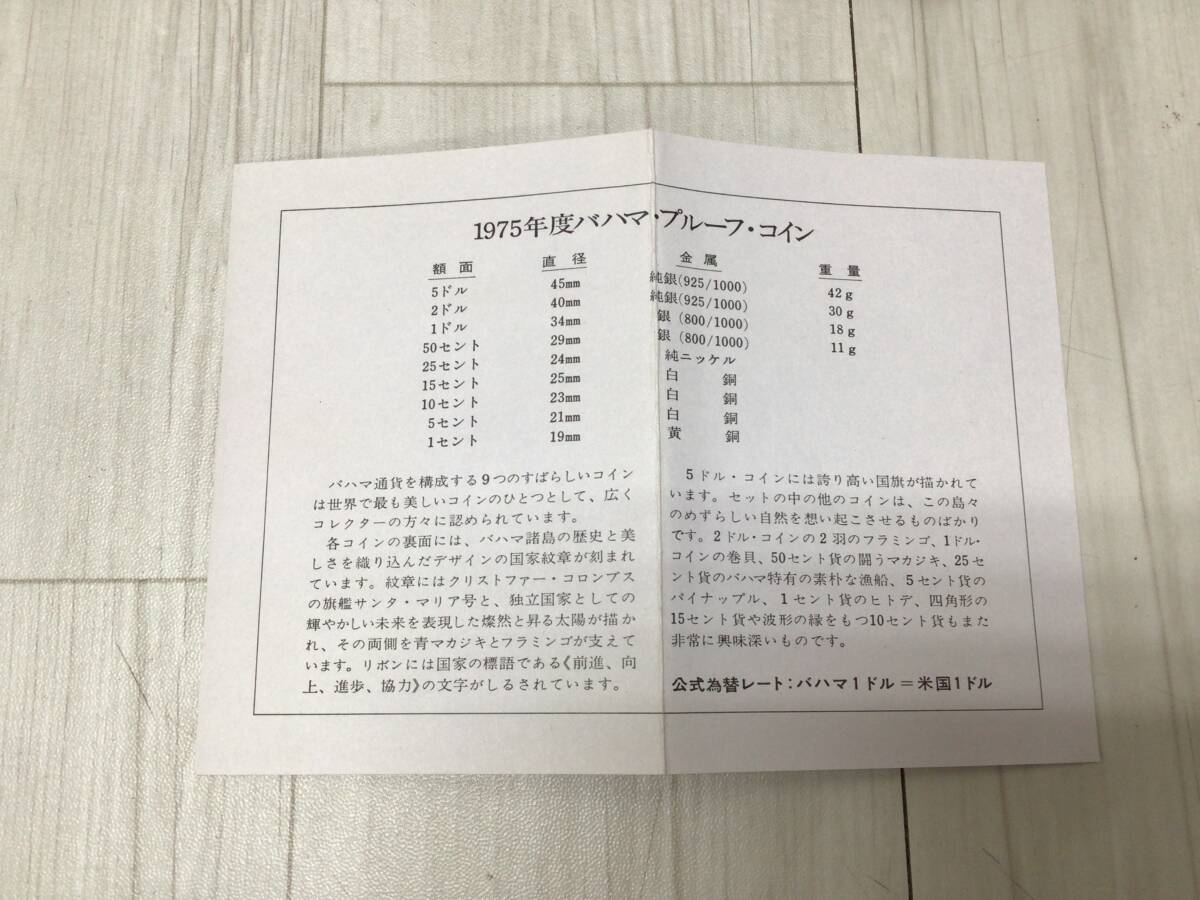 1975年度バハマ・プルーフ・コイン
額面 直径 金属 重量
5ドル 45mm 純銀(925/1000) 42g
2ドル 40mm 純銀(925/1000) 30g
1ドル 34mm 銀(800/1000) 18g
50セント 29mm 銀(800/1000) 11g
25セント 24mm 純ニッケル
15セント 25mm 白銅
10セント 23mm 白銅
5セント 21mm 白銅
1セント 19mm 黄銅
バハマ通貨を構成する9つのすばらしいコイン
は世界で最も美しいコインのひとつとして、広く
コレクターの方々に認められています。
各コインの裏面には、バハマ諸島の歴史と美
しさを織り込んだデザインの国家紋章が刻まれ
ています。紋章にはクリストファー・コロンブス
の旗艦サンタ・マリア号と、独立国家としての
輝やかしい未来を表現した燦然と昇る太陽が描か
れ、その両側を青マカジキとフラミンゴが支えて
います。リボンには国家の標語である《前進、向
上、進歩、協力》の文字がしるされています。
5ドル・コインには誇り高い国旗が描かれて
います。セットの中の他のコインは、この島々
のめずらしい自然を想い起こさせるものばかり
です。2ドル・コインの2羽のフラミンゴ、1ドル・
コインの巻貝、50セント貨の闘うマカジキ、25セ
ント貨のバハマ特有の素朴な漁船、5セント貨の
パイナップル、1セント貨のヒトデ、四角形の
15セント貨や波形の縁をもつ10セント貨もまた
非常に興味深いものです。
公式為替レート：バハマ1ドル＝米国1ドル